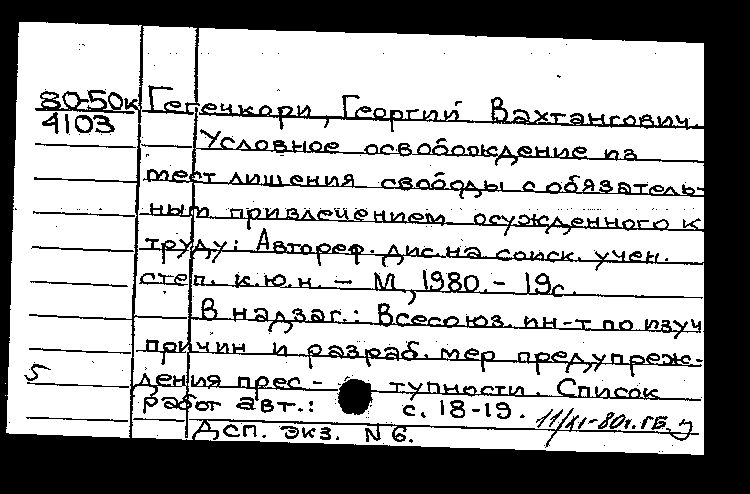 80-50к Гегечкори, Георгий Вахтангович
4103
Условное освобождение из
мест лишения свободы с обязатель-
ным привлечением осужденного к
труду: Автореф. дис. на соиск. учен.
степ. к.ю.н. – М, 1980. – 19с.
В надзаг.: Всесоюз. ин-т по изуч
причин и разраб. мер предупреж-
5 дения прес- тупности. Список
работ авт.: с. 18-19. 11/XI-80г. ГБ.
Дсп. экз. N 6.